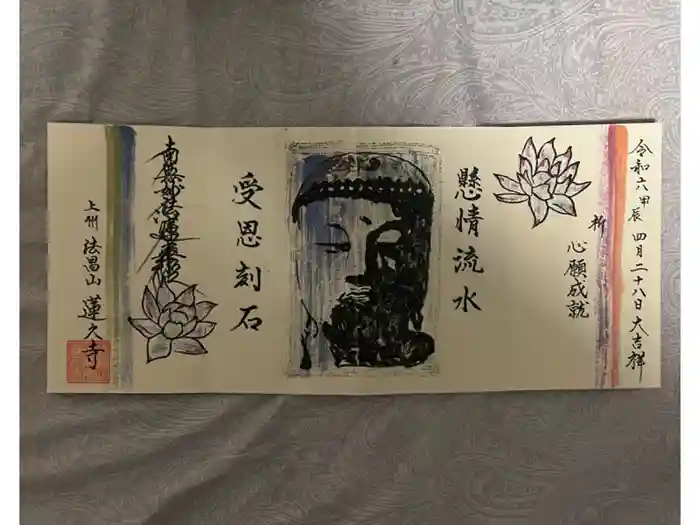 令和六甲辰 四月二十八日 大吉祥
祈 心願成就
懸情流水
受恩刻石
南無妙法蓮華経
上州 法昌山 蓮久寺